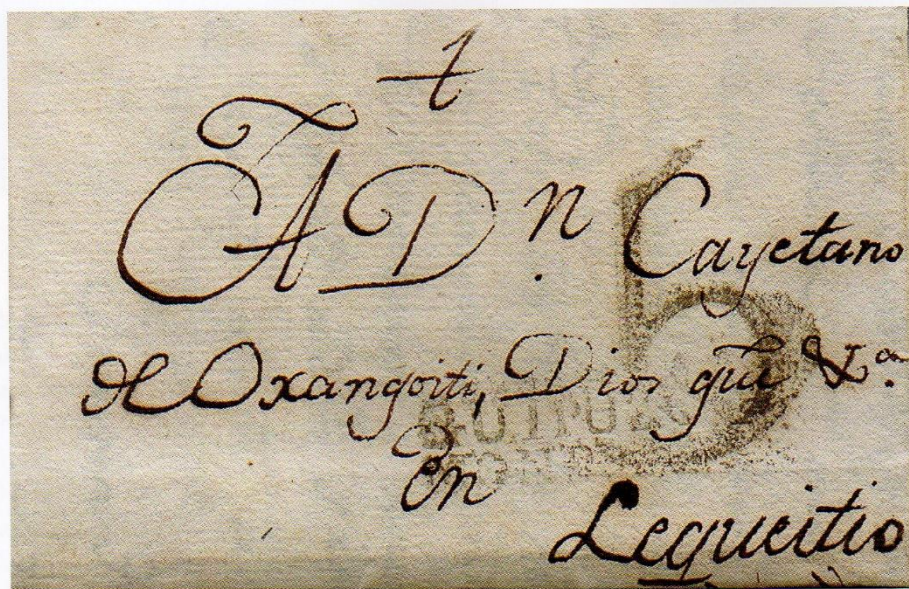 A Dn. Cayetano
de Oxangoiti, Dios gũe
6
en
Lequeitio